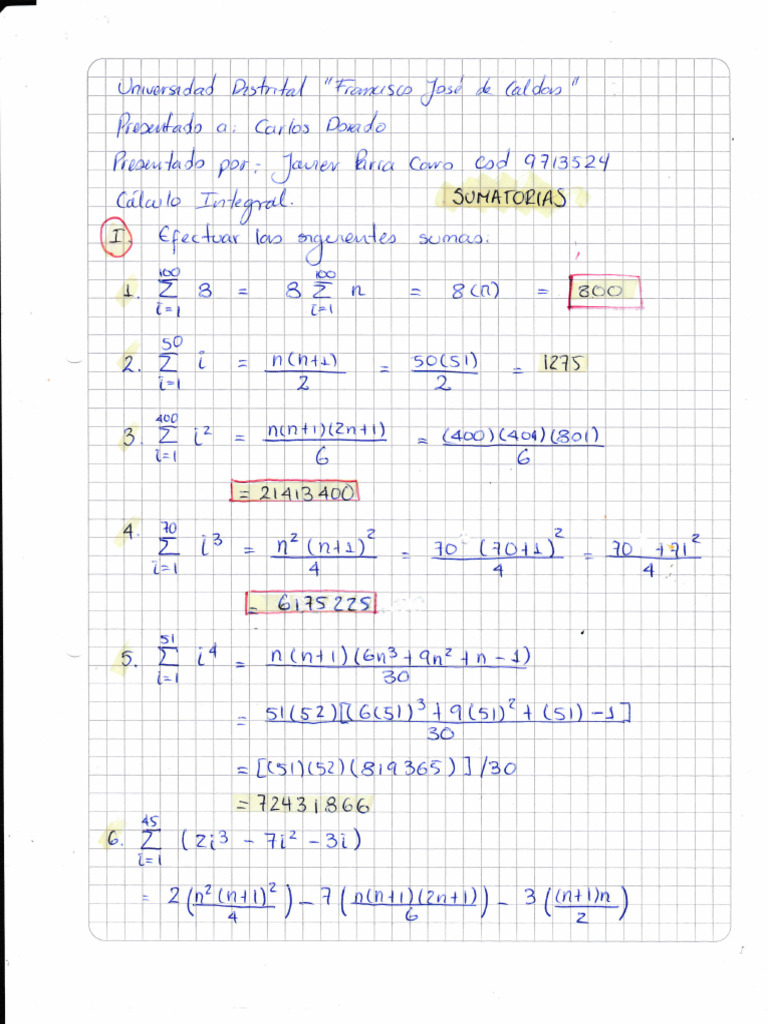 Universidad Distrital "Francisco José de Caldas"
Presentado a: Carlos Dorado
Presentado por: Javier Parra Cod 9713524
Cálculo Integral. SUMATORIAS
I. Efectuar las siguientes sumas.
1. \sum_{i=1}^{100} 8 = 8 \sum_{i=1}^{100} n = 8(n) = 800
2. \sum_{i=1}^{50} i = \frac{n(n+1)}{2} = \frac{50(51)}{2} = 1275
3. \sum_{i=1}^{400} i^2 = \frac{n(n+1)(2n+1)}{6} = \frac{(400)(401)(801)}{6}
= 21413400
4. \sum_{i=1}^{70} i^3 = \frac{n^2(n+1)^2}{4} = \frac{70 (70+1)^2}{4} = \frac{70 + 71^2}{4}
= 6175225
5. \sum_{i=1}^{51} i^4 = \frac{n(n+1)(6n^3+9n^2+n-1)}{30}
= \frac{51(52)[(6(51)^3+9(51)^2+(51)-1]}{30}
= [(51)(52)(819365)]/30
= 72431866
6. \sum_{i=1}^{45} (2i^3 - 7i^2 - 3i)
= 2(\frac{n^2(n+1)^2}{4}) - 7(\frac{n(n+1)(2n+1)}{6}) - 3(\frac{(n+1)n}{2})